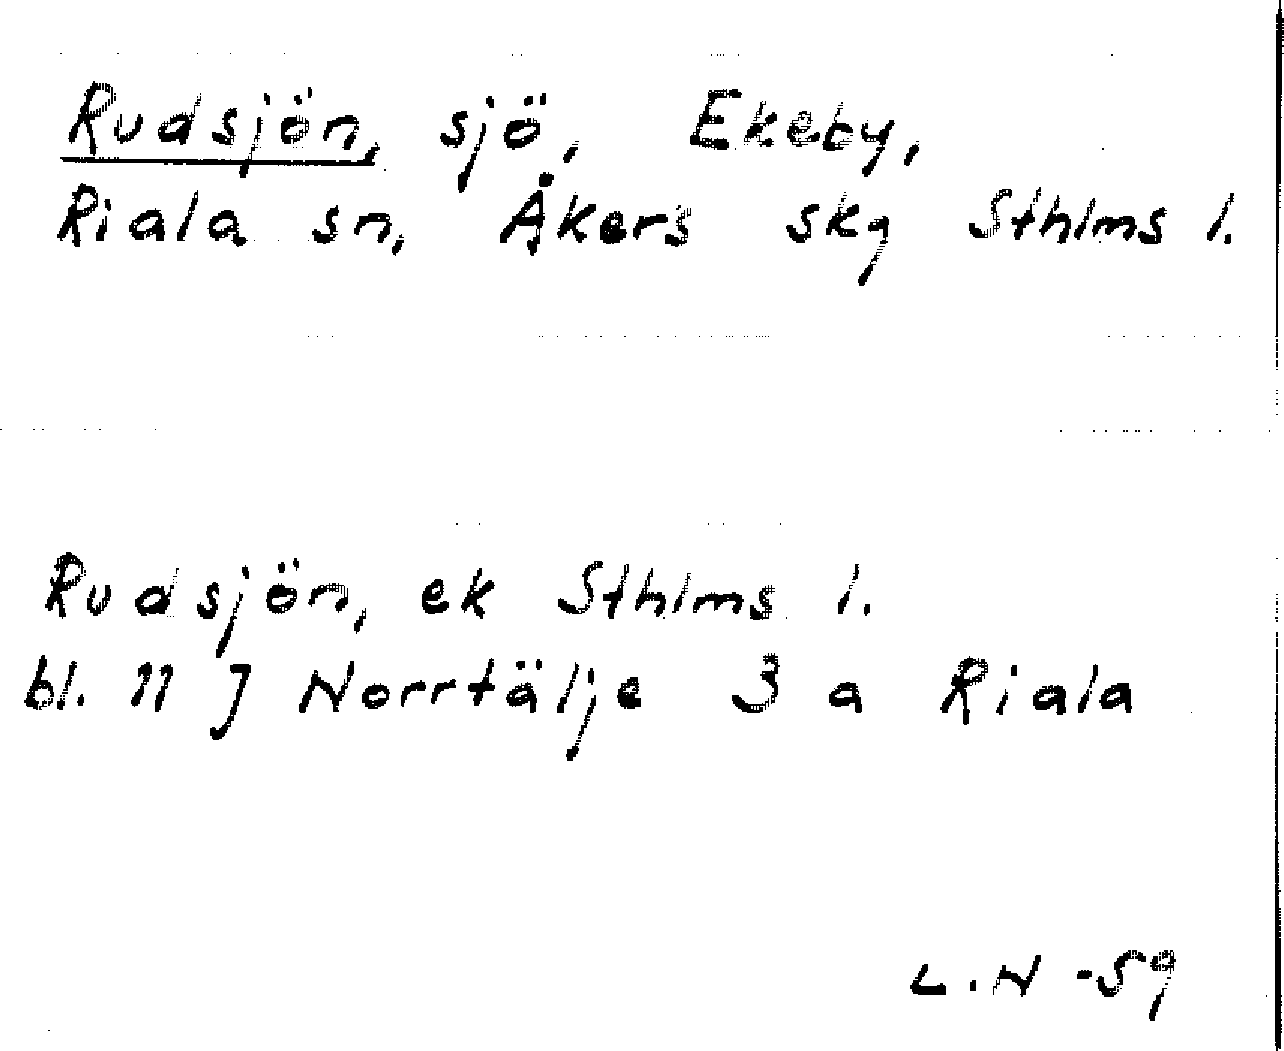 Rudsjön, sjö, Ekeby,
Riala sn, Åkers skg Sthlms l.
Rudsjön, ek Sthlms l.
bl. 11 J Norrtälje 3 a Riala
L.N -59